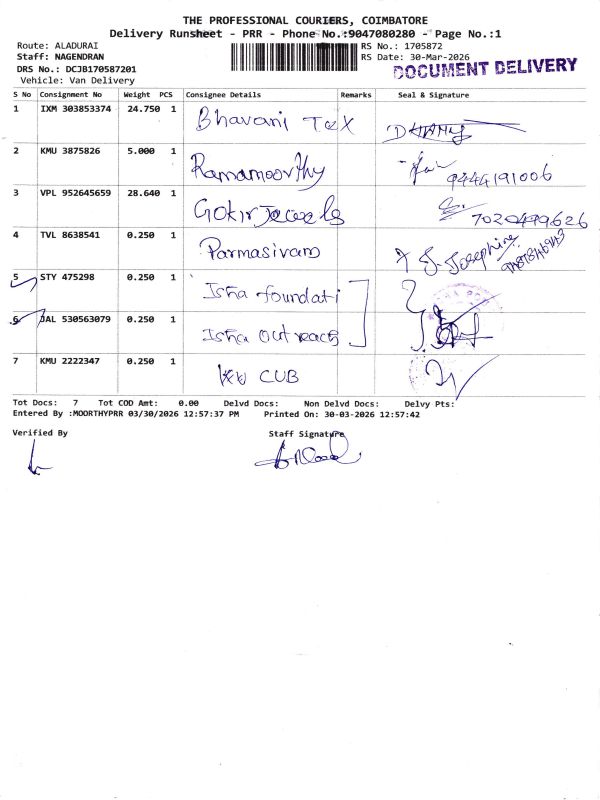 THE PROFESSIONAL COURIERS, COIMBATORE
Delivery Runsheet - PRR - Phone No.:9047080280 - Page No.:1
Route: ALADURAI
RS No.: 1705872
Staff: NAGENDRAN
RS Date: 30-Mar-2026
DRS No.: DCJB170587201
DOCUMENT DELIVERY
Vehicle: Van Delivery
S No Consignment No Weight PCS Consignee Details Remarks Seal & Signature
1 IXM 303853374 24.750 1 Bhavani Tex
2 KMU 3875826 5.000 1 Ramamoorthy 9444191006
3 VPL 952645659 28.640 1 7020499626
4 TVL 8638541 0.250 1 Parmasivam J. Josephine
5 STY 475298 0.250 1 Isha foundati
6 JAL 530563079 0.250 1 Isha outreach
7 KMU 2222347 0.250 1 CUB
Tot Docs: 7 Tot COD Amt: 0.00 Delvd Docs: Non Delvd Docs: Delvy Pts:
Entered By :MOORTHYPRR 03/30/2026 12:57:37 PM Printed On: 30-03-2026 12:57:42
Verified By Staff Signature